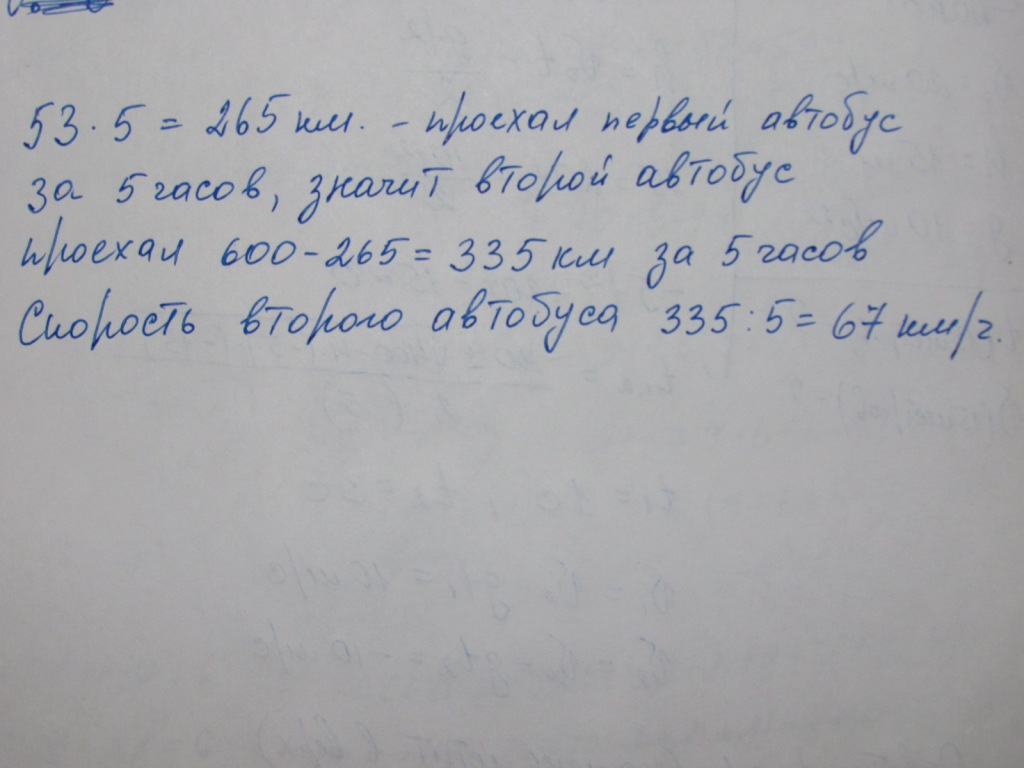 53 · 5 = 265 км. - проехал первый автобус
за 5 часов, значит второй автобус
проехал 600 - 265 = 335 км за 5 часов
Скорость второго автобуса 335 : 5 = 67 км/ч.